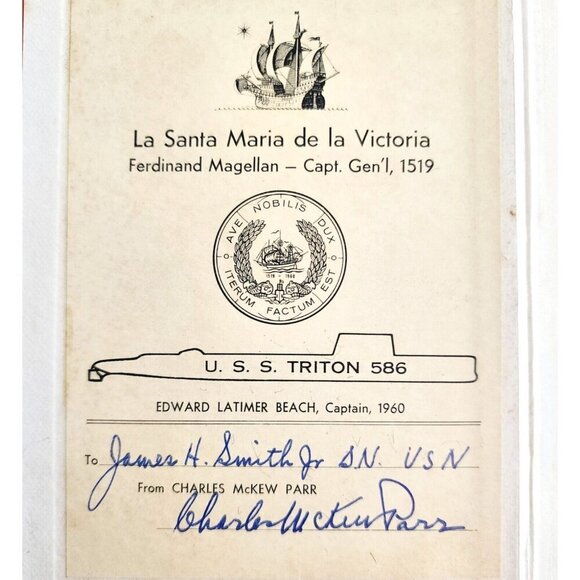 La Santa Maria de la Victoria
Ferdinand Magellan – Capt. Gen'l, 1519
AVE NOBILIS DUX
ITERUM FACTUM EST
1519 - 1960
U. S. S. TRITON 586
EDWARD LATIMER BEACH, Captain, 1960
To James H. Smith Jr SN. USN
From CHARLES McKEW PARR
Charles McKew Parr